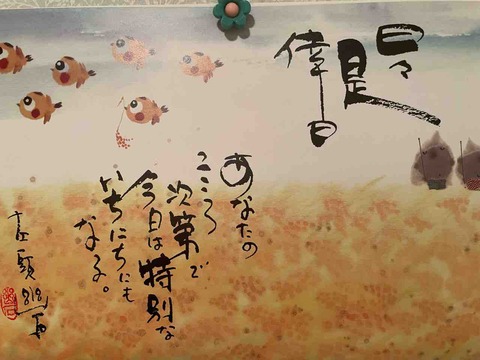 日々
是
倖日
あなたの
こころ
次第で
今日は特別な
いちにちにも
なる。